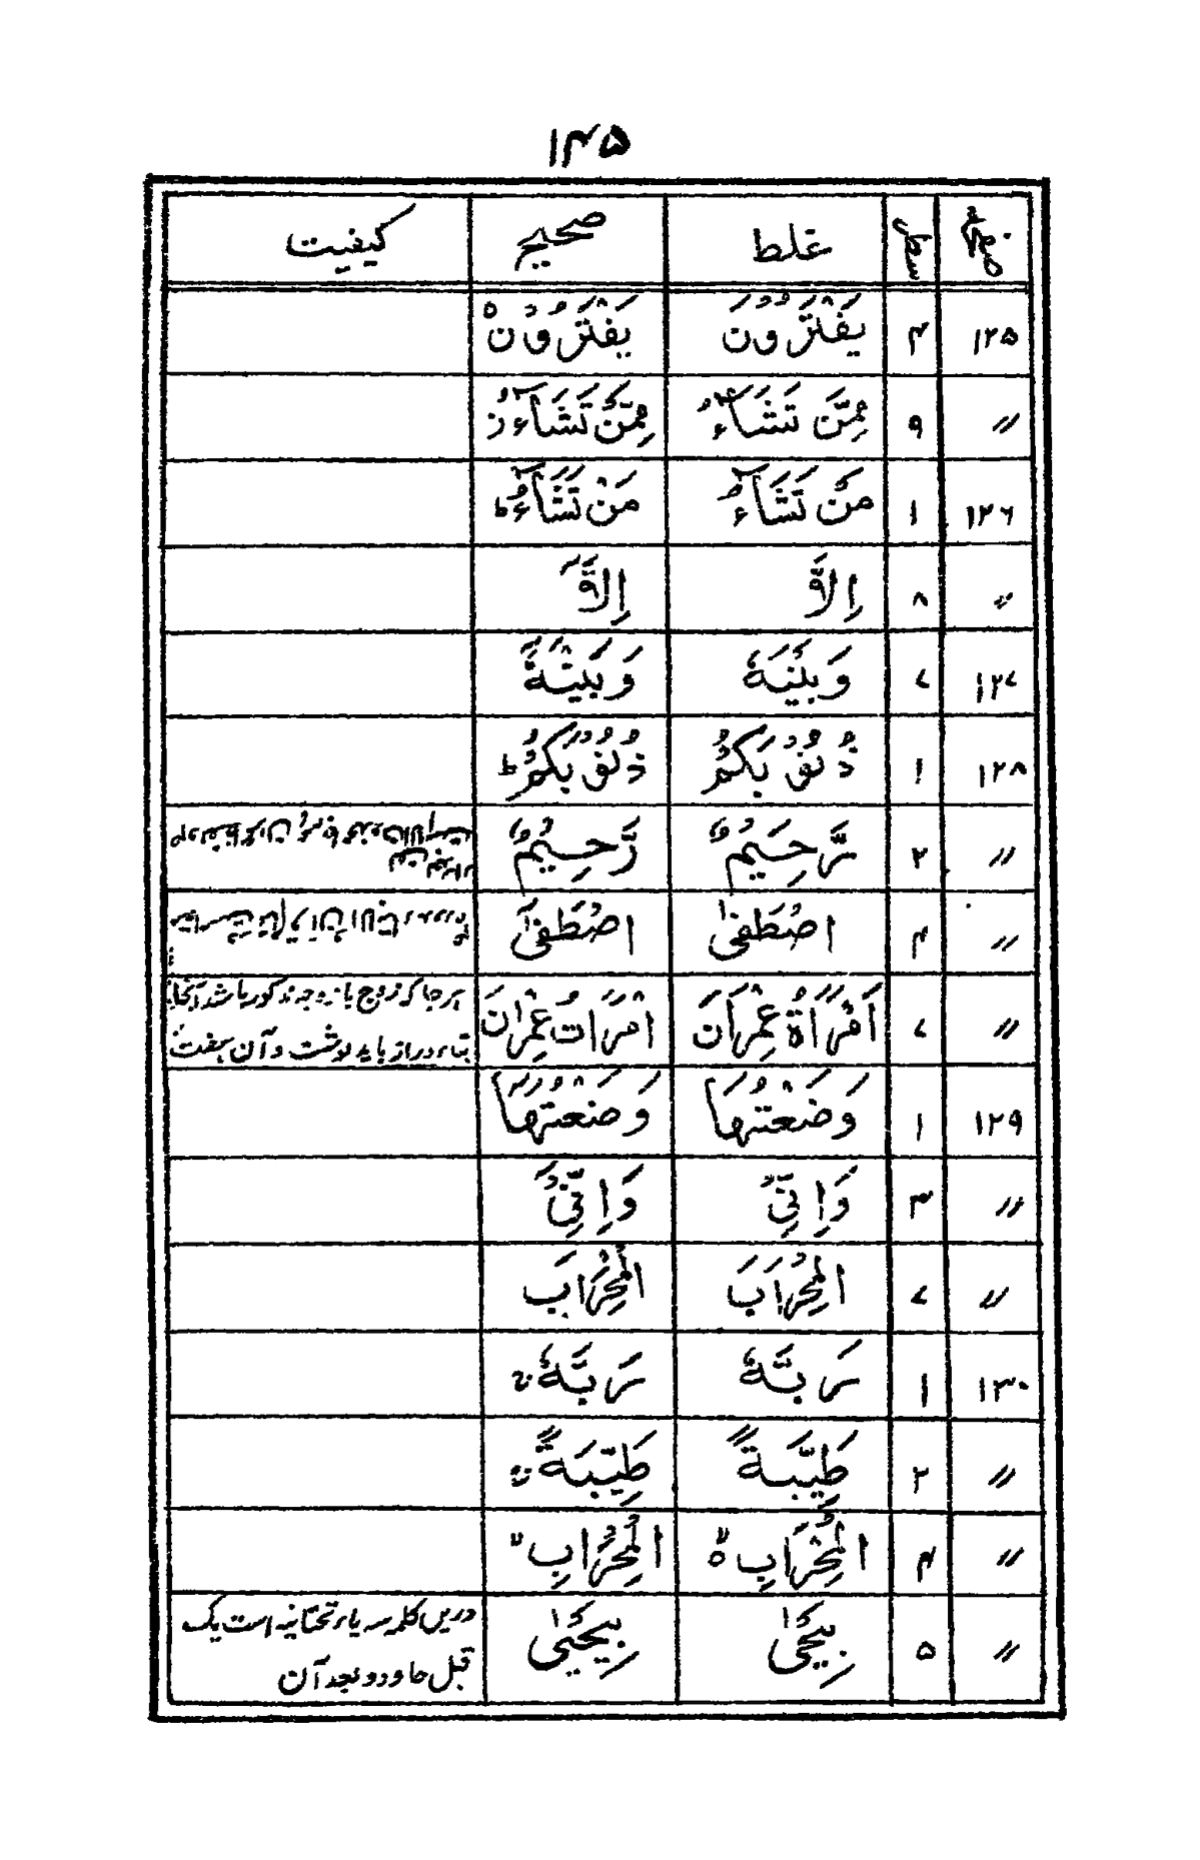 ۱۴۵
صفحہ سطر غلط صحیح کیفیت
۱۲۵ ۴ يَفْتَرُوْنَ يَفْتَرُوْنَ
〃 ۹ مِمَّنْ تَشَآءُ مِمَّنْ تَشَآءُ ز
۱۲۶ ۱ مَنْ تَشَآءُ مَنْ تَشَآءُ ط
〃 ۸ اِلَّآ اِلَّآ
۱۲۷ ۷ وَبَيْنَهٗ وَبَيْنَهٗٓ
۱۲۸ ۱ ذُنُوْبَكُمْ ذُنُوْبَكُمْ ط
〃 ۲ رَّحِيْمٌ رَّحِيْمٌ
〃 ۴ اصْطَفٰى اصْطَفٰٓى
〃 ۷ امْرَاَةُ عِمْرَانَ امْرَاَتُ عِمْرٰنَ ہر جا کہ زوج با زوجہ مذکور باشد آنجا
بتاء دراز باید نوشت و آن ہفت
۱۲۹ ۱ وَضَعْتُهَا وَضَعْتُهَآ
〃 ۳ وَاِنِّيْ وَاِنِّيْٓ
〃 ۷ الْمِحْرَابَ الْمِحْرَابَ
۱۳۰ ۱ رَبَّهٗ رَبَّهٗ ج
〃 ۲ طَيِّبَةً طَيِّبَةً ج
〃 ۴ الْمِحْرَابِ الْمِحْرَابِ لا
〃 ۵ بِيَحْيٰى بِيَحْيٰى دریں کلمہ سہ یاء تحتانیہ است یک
قبل حا و دو بعد آن